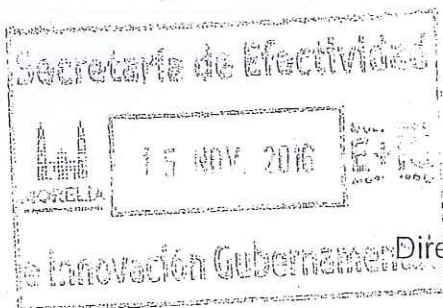 Secretaría de Efectividad
MORELIA
15 NOV. 2016
e Innovación Gubernamental
Dire